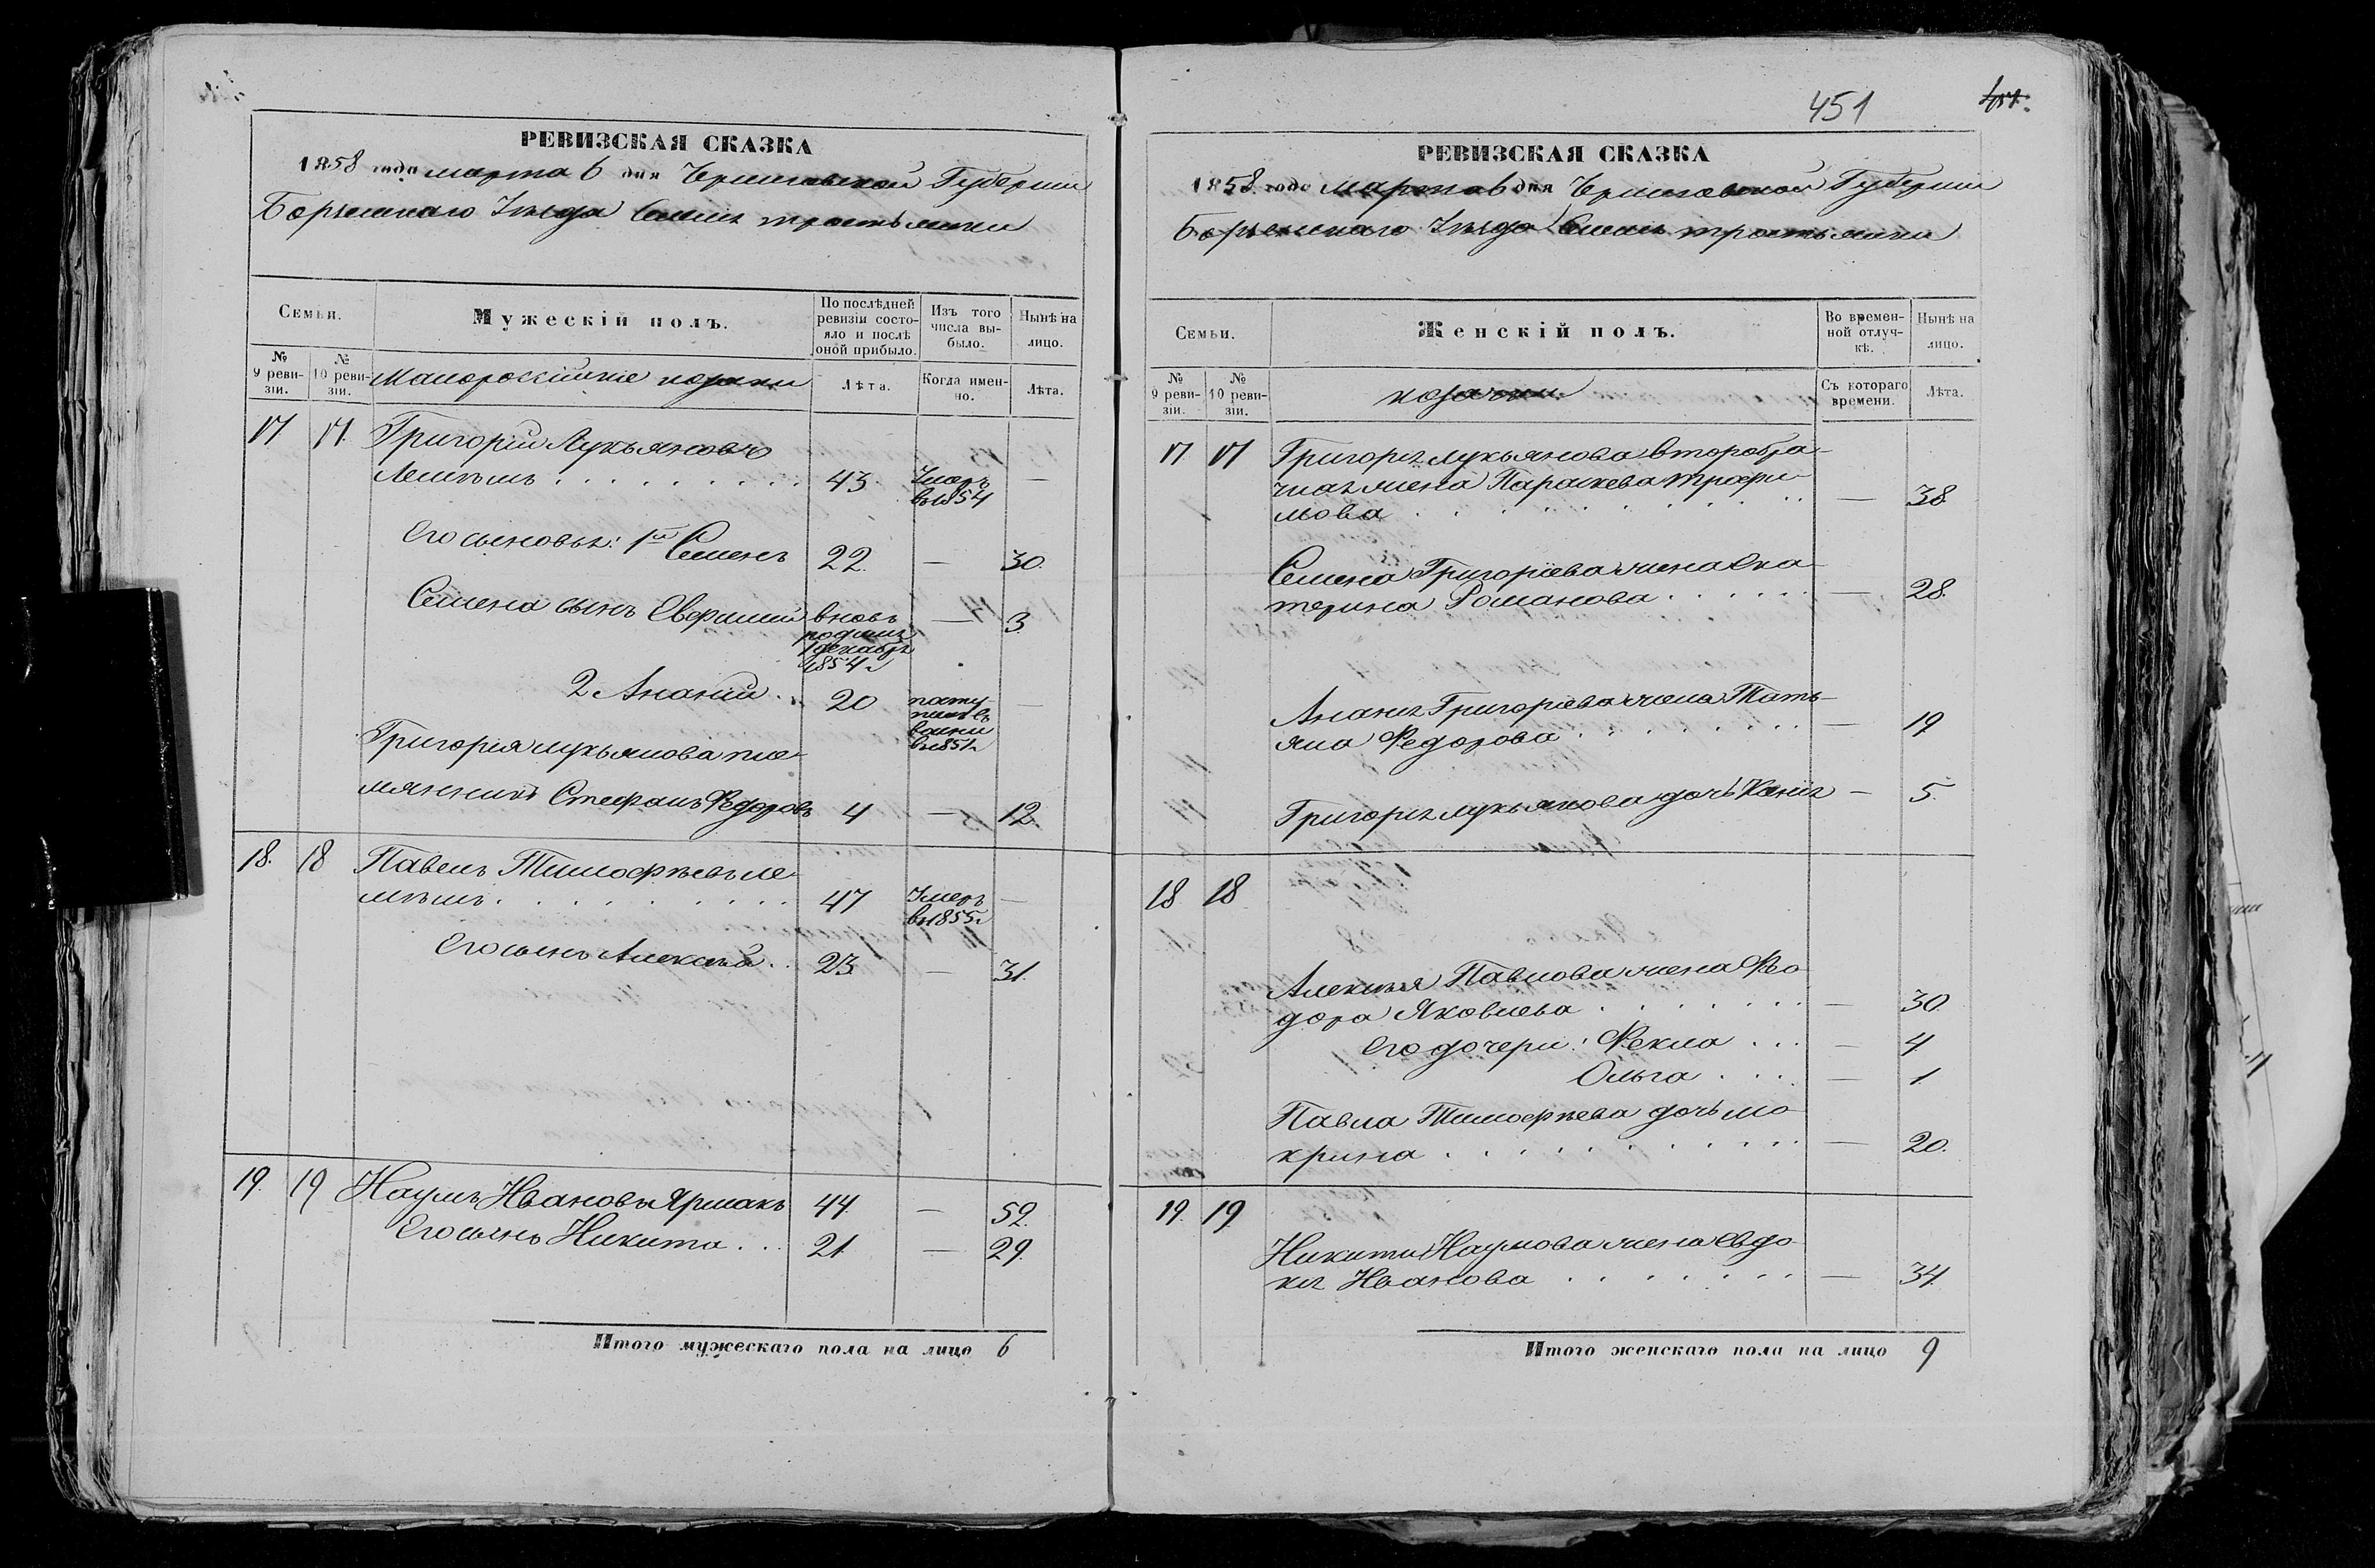 РЕВИЗСКАЯ СКАЗКА
1858 года марта 6 дня Черниговской Губернии
Борзенскаго Уезда Села
Семьи.
Мужескій полъ.
По послѣдней ревизіи состояло и послѣ оной прибыло.
Изъ того числа выбыло.
Нынѣ на лицо.
№ 9 ревизіи.
№ 10 ревизіи.
Малороссійскіе козаки
Лѣта.
Когда именно.
Лѣта.
17 17. Григорій Лукьяновъ
. . . . . . . . . 43 Умеръ —
въ 1854
Его сыновья: 1й Семенъ 22 — 30.
Семена сынъ вновь — 3.
1 декабр
1854
2 Ананій . . 20 —
в 1851
Григорія Лукьянова пле-
мянникъ Стефанъ Федоровъ 4 — 12.
18. 18 Павелъ Тимофѣевъ Ле-
. . . . . . . . . 47 Умеръ —
въ 1855
Его сынъ Алексѣй . . 23 — 31.
19. 19 Наумъ Ивановъ Ярмакъ 44 — 52.
Его сынъ Никита . . . 21 — 29.
Итого мужескаго пола на лицо 6
451
РЕВИЗСКАЯ СКАЗКА
1858 года марта 6 дня Черниговской Губернии
Борзенскаго Уезда Села
Семьи.
Женскій полъ.
Во временной отлучкѣ.
Нынѣ на лицо.
№ 9 ревизіи.
№ 10 ревизіи.
козачки
Съ котораго времени.
Лѣта.
17 17 Григорія Лукьянова второбра-
чная жена Параскева Трофи-
мова . . . . . . . . — 38.
Семена Григоріева жена Ека-
терина Романова . . . . . . — 28.
Ананія Григоріева жена Тать-
яна Федорова . . . . . . . — 19
Григорія Лукьянова дочь — 5.
18 18
Алексѣя Павлова жена Фео-
дора Яковлева . . . . . . . — 30.
Его дочери: Фекла . . . — 4
Ольга . . . — 1.
Павла Тимофѣева дочь Мо-
крина . . . . . . . . . . — 20.
19. 19.
Никиты Наумова жена Евдо-
кія Иванова . . . . . . . — 34.
Итого женскаго пола на лицо 9